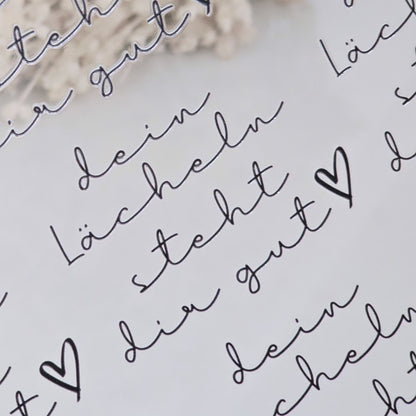 steht
dir gut
Lä
dein
Lächeln
steht
dir gut
dein